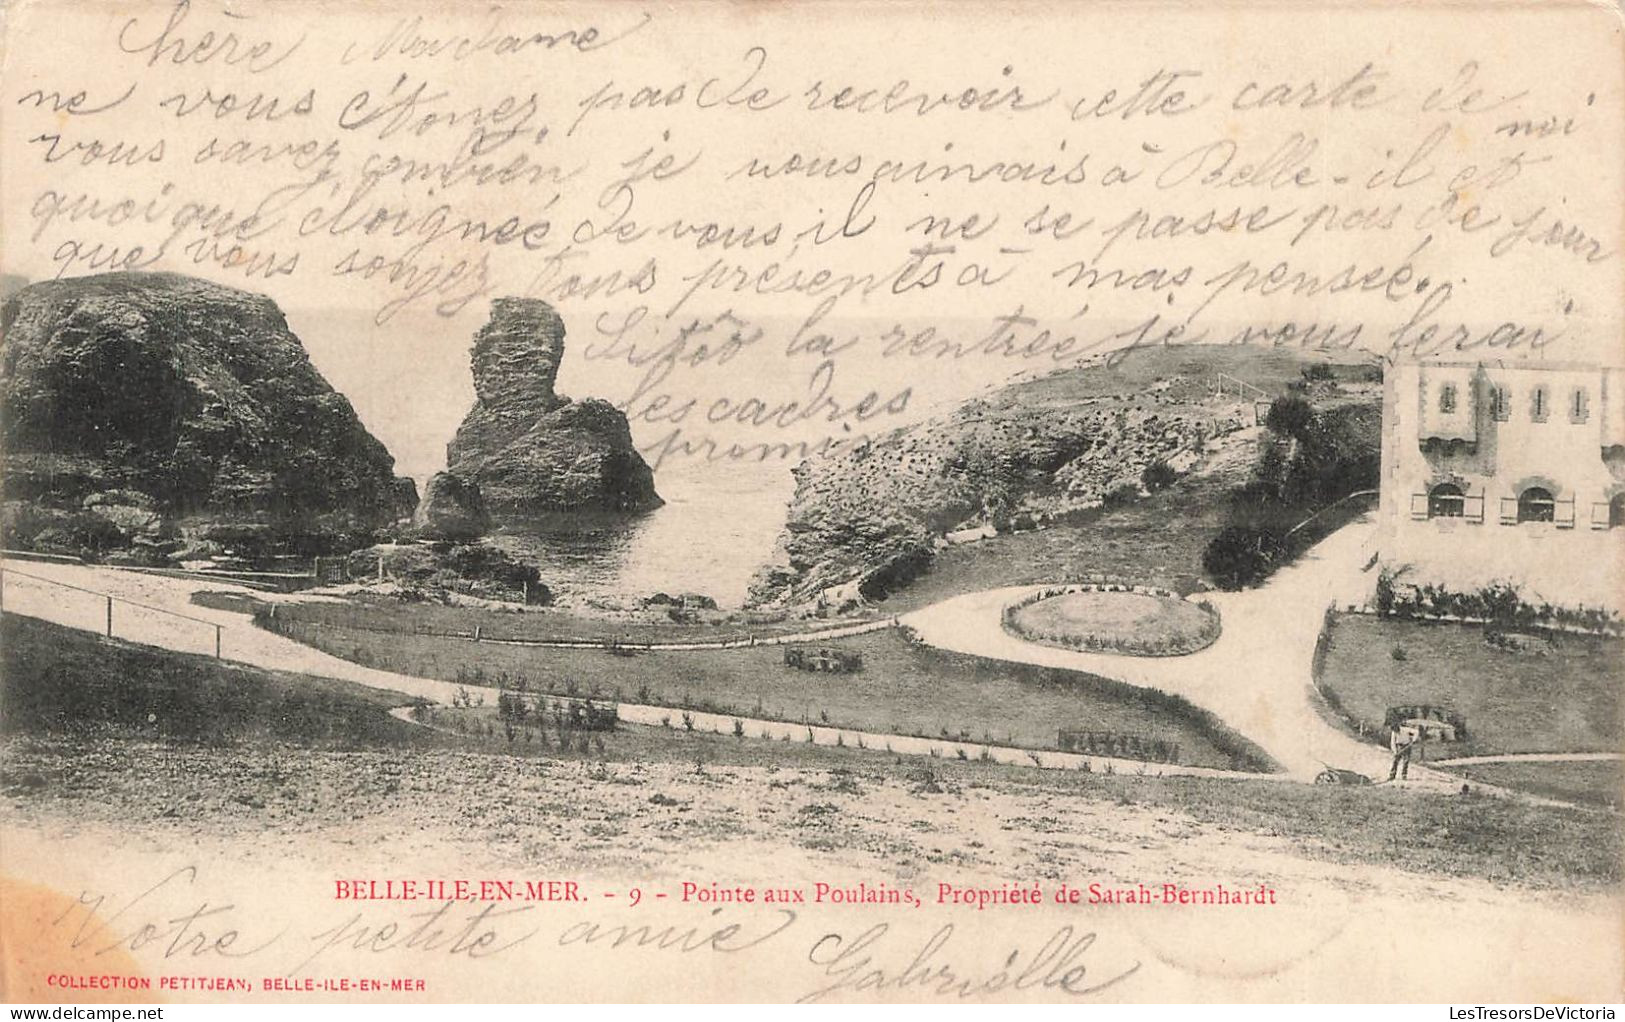 Chère Madame
ne vous étonez pas de recevoir cette carte de
moi
vous savez combien je vous aimais à Belle-il et
quoique éloignée de vous, il ne se passe pas de jour
que vous soyez tous présents à mas pensée.
Sitôt la rentrée je vous ferai
les cadres
promis
BELLE-ILE-EN-MER. - 9 - Pointe aux Poulains, Propriété de Sarah-Bernhardt
Votre petite amie Gabriélle
COLLECTION PETITJEAN, BELLE-ILE-EN-MER
LesTresorsDeVictoria